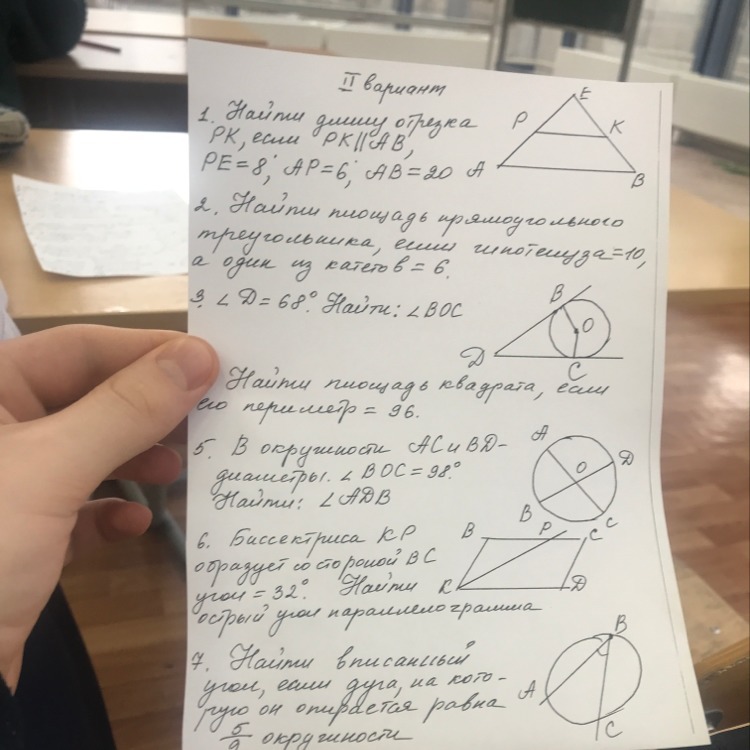 II вариант
1. Найти длину отрезка
PK, если PK∥AB,
PE=8; AP=6; AB=20
E
P
K
A
B
2. Найти площадь прямоугольного
треугольника, если гипотенуза=10,
а один из катетов = 6.
3. ∠D=68° Найти: ∠BOC
B
O
D
C
Найти площадь квадрата, если
его периметр = 96.
5. В окружности AC и BD-
диаметры. ∠BOC=98°
Найти: ∠ADB
A
O
D
B
C
6. Биссектриса KP
образует со стороной BC
угол = 32°. Найти
острый угол параллелограмма
B
P
C
K
D
7. Найти вписанный
угол, если дуга, на кото-
рую он опирается равна
5/9 окружности
B
A
C